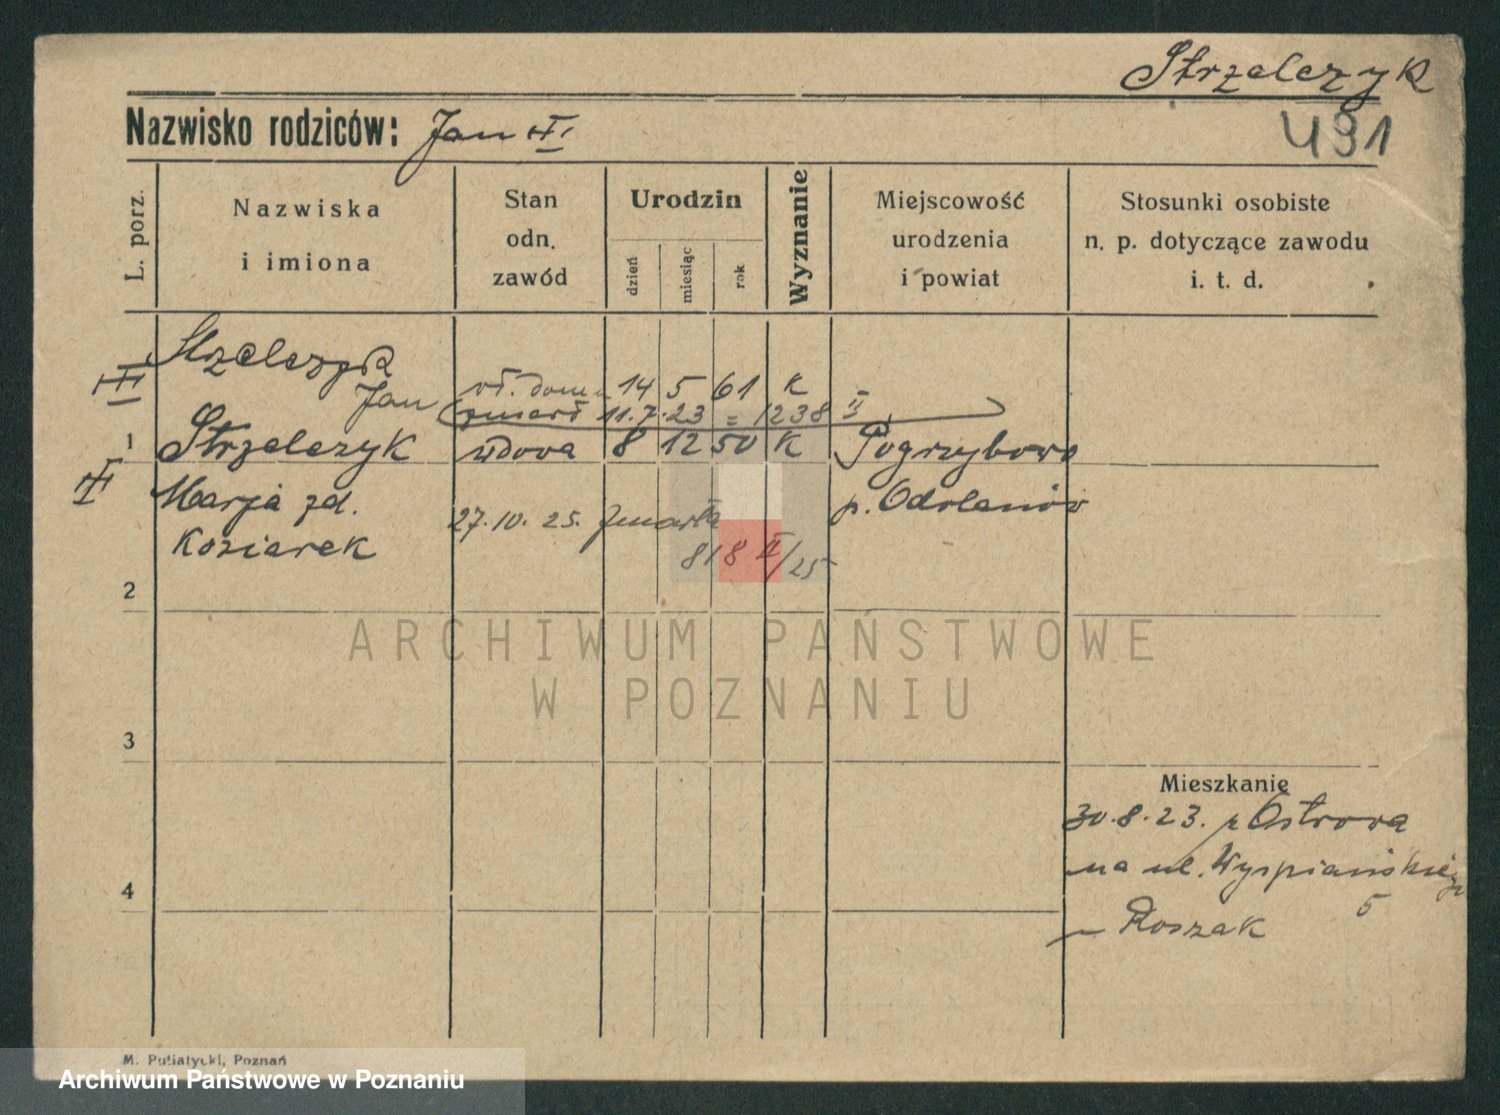 Strzelczyk
491
Nazwisko rodziców: Jan
L. porz.
Nazwiska
i imiona
Stan
odn.
zawód
Urodzin
dzień
miesiąc
rok
Wyznanie
Miejscowość
urodzenia
i powiat
Stosunki osobiste
n. p. dotyczące zawodu
i. t. d.
Strzelczyk
Jan wł. domu 14 5 61 K
zmarł 11.7.23 = 1238 II
1 Strzelczyk wdowa 8 12 50 K Pogrzybowo
Marja zd. p. Odolanów
27.10.25. zmarła
Koziarek
818 II/25
2
ARCHIWUM PAŃSTWOWE
W POZNANIU
3
Mieszkanie
30.8.23. z Ostrowa
na ul. Wyspiańskiego
4
5
Roszak
M. Putiatycki, Poznań
Archiwum Państwowe w Poznaniu